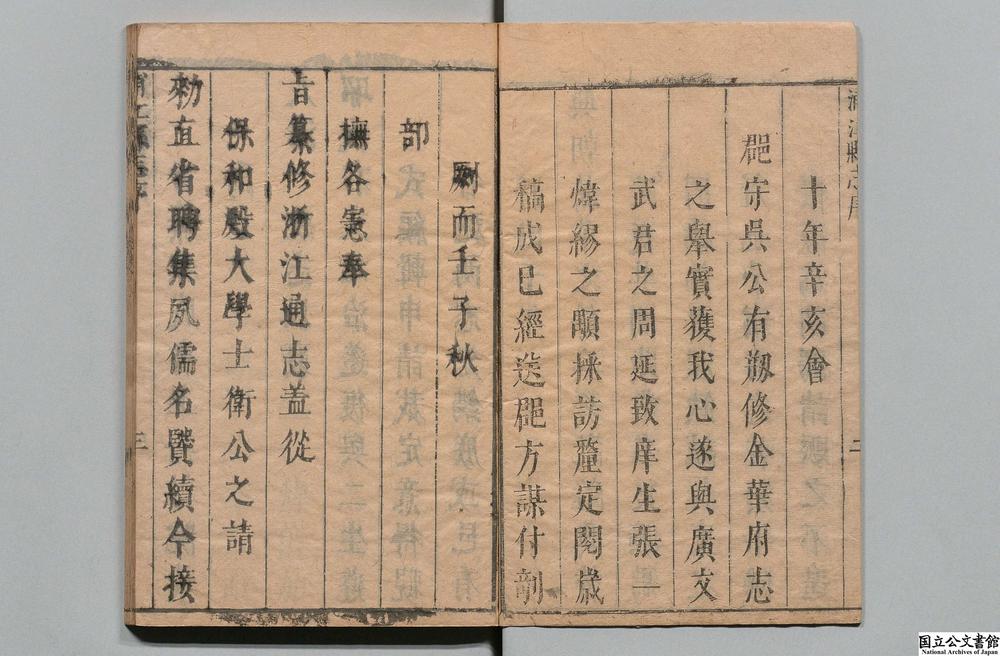 十年辛亥會
郡守吳公有剏修金華府志
之舉實獲我心遂與廣文
武君之周延致庠生張一
煒繆之顒採訪釐定閱歲
稿成已經送郡方謀付剞
劂而壬子秋
部
撫各憲奉
旨纂修浙江通志蓋從
保和殿大學士衛公之請
勑直省聘集夙儒名賢續今接
浦江縣志序
二
三
国立公文書館
National Archives of Japan